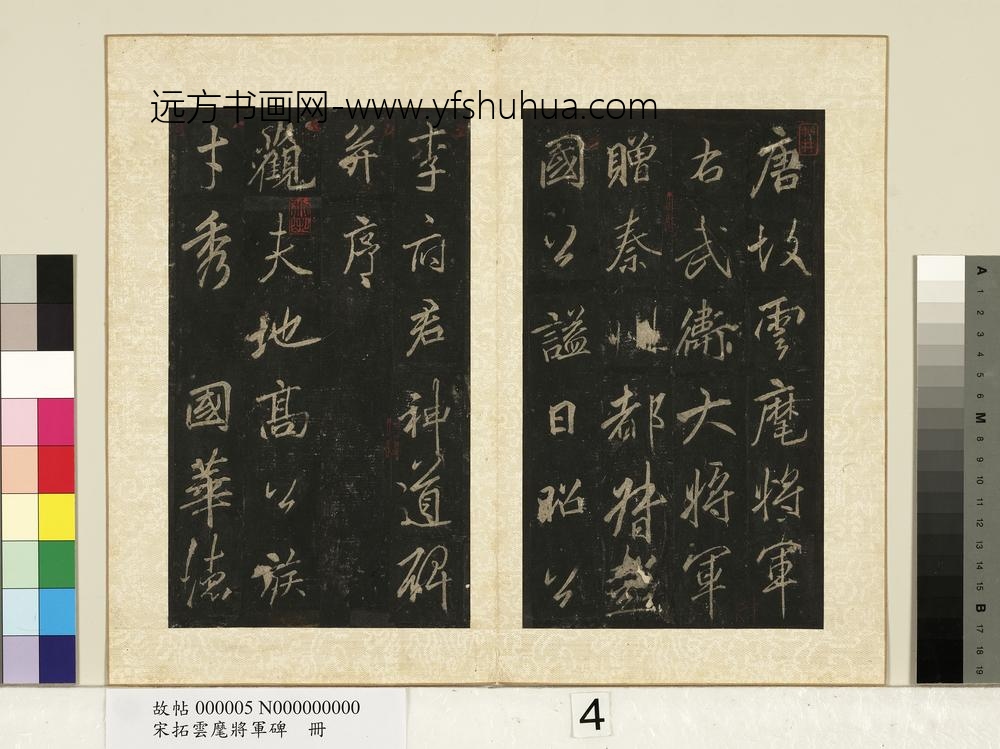 远方书画网-www.yfshuhua.com
唐故雲麾將軍
右武衛大將軍
贈秦州都督彭
國公謚曰昭公
李府君神道碑
并序
觀夫地高公族
才秀國華德
故帖 000005 N000000000
宋拓雲麾將軍碑 冊
4
A 1 2 3 4 5 6 M 8 9 10 11 12 13 14 15 B 17 18 19